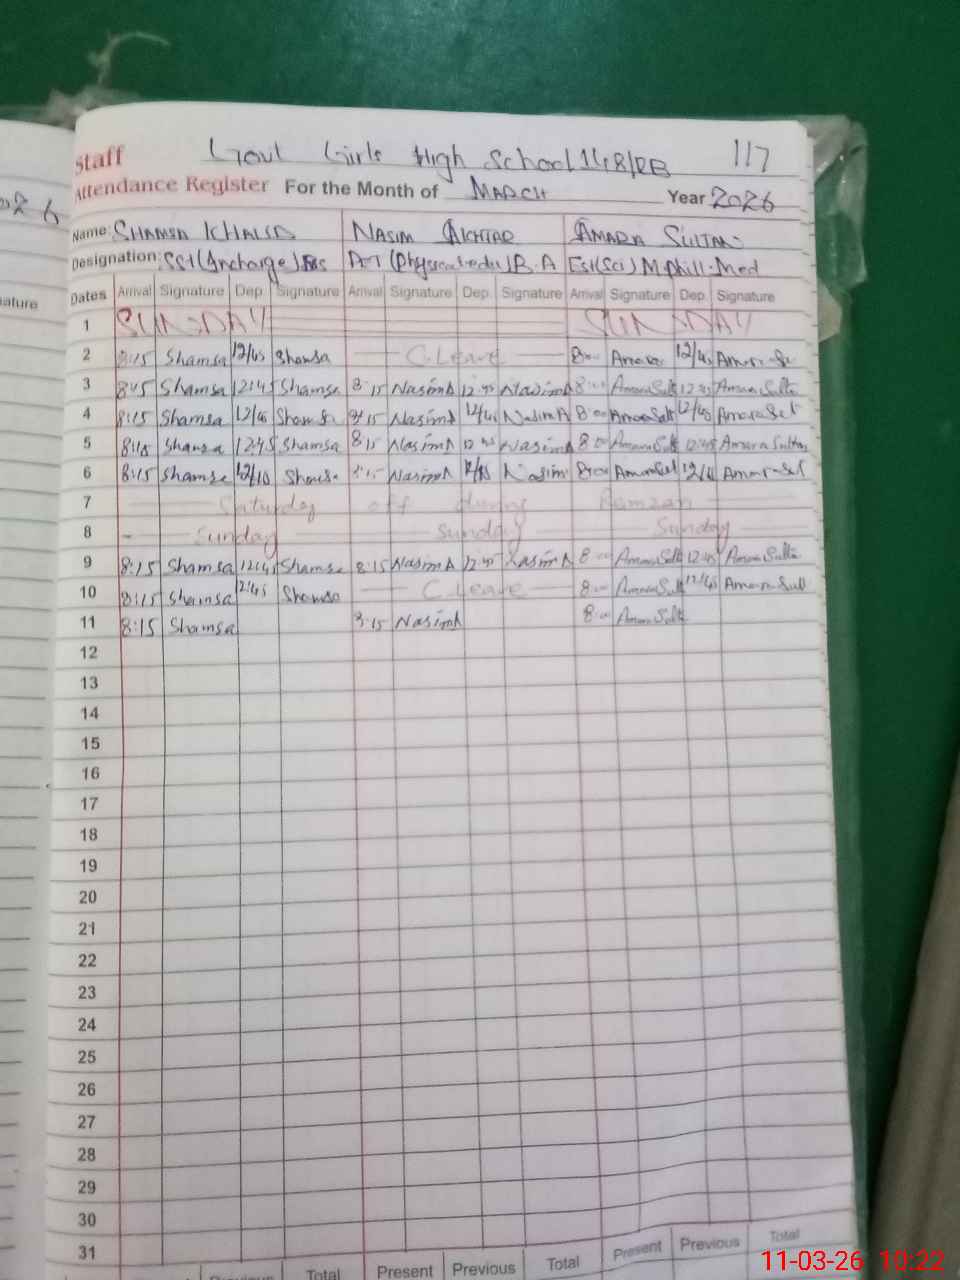 Staff Govt Girls High School 148/RB 117
Attendance Register For the Month of MARCH Year 2026
Name: SHAMSA KHALID NASIM AKHTAR AMARA SULTAN
Designation: SST (Incharge) PET (Physical edu) B.A Est (Sci) M.Phill. Med
Dates Arrival Signature Dep. Signature Arrival Signature Dep. Signature Arrival Signature Dep. Signature
1 SUNDAY SUNDAY
2 8:15 Shamsa 12/45 Shamsa C.Leave 8:00 Amara 12/45
3 8:45 Shamsa 12:45 Shamsa 8:15 NasimA 12:45 NasimA 8:00 12:45
4 8:15 Shamsa 12/45 Shamsa 8:15 NasimA 12/45 NasimA 8:00 12/45
5 8:15 Shamsa 12:45 Shamsa 8:15 NasimA 12:45 NasimA 8:00 12:45 Amara Sultan
6 8:15 Shamsa Shamsa 8:15 NasimA Nasim 8:00
7 Saturday off during Ramzan
8 Sunday Sunday Sunday
9 8:15 Shamsa 12:45 Shamsa 8:15 NasimA 12:45 NasimA 8:00 12:45
10 8:15 Shamsa 12:45 Shamsa C.Leave 8:00 12/45
11 8:15 Shamsa 8:15 NasimA 8:00
12
13
14
15
16
17
18
19
20
21
22
23
24
25
26
27
28
29
30
31
Total Present Previous Total Present Previous Total
11-03-26 10:22